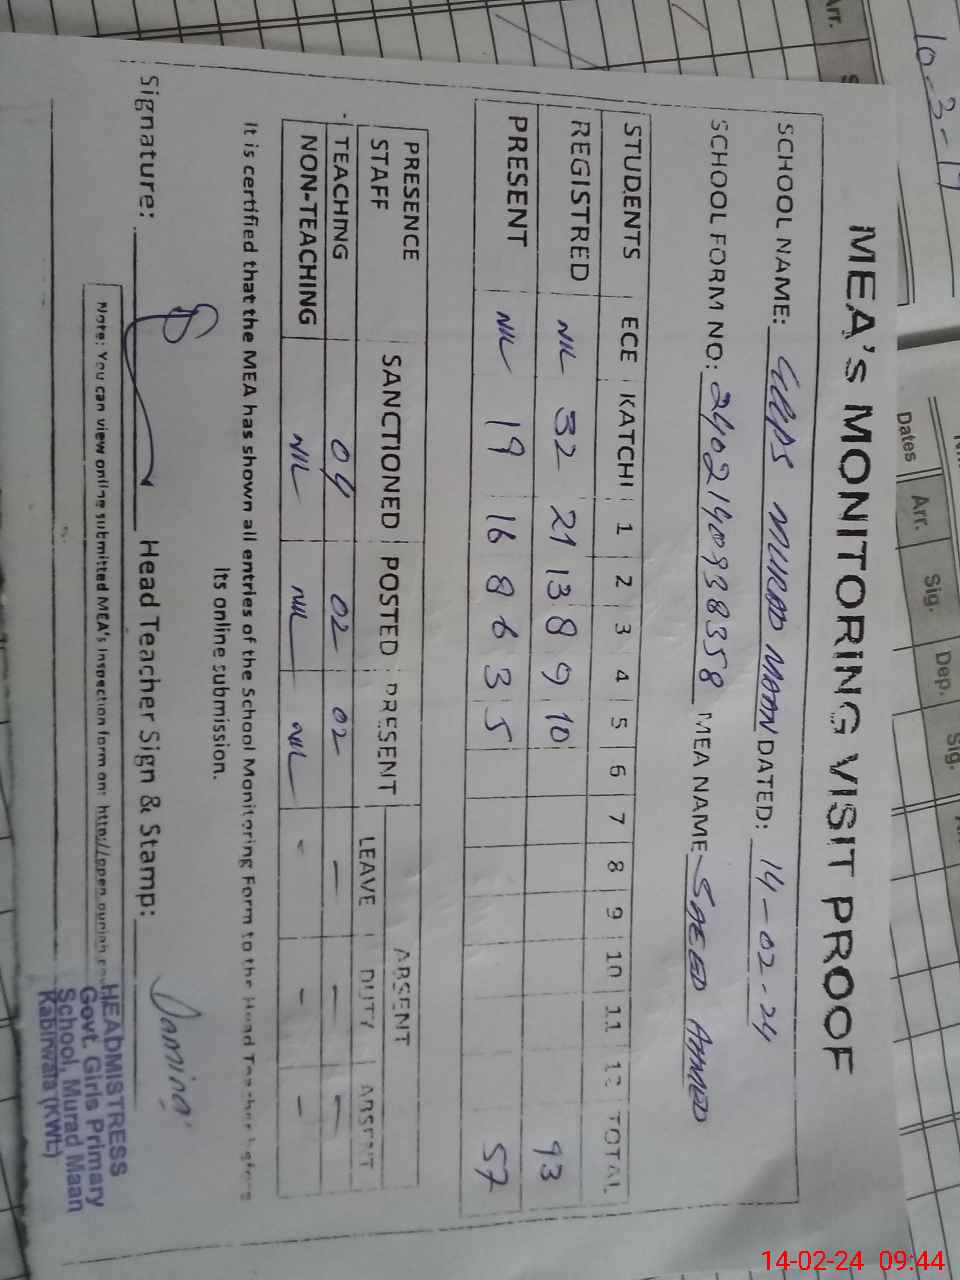 MEA's MONITORING VISIT PROOF
SCHOOL NAME: GGPS MURAD MAAN DATED: 14-02-24
SCHOOL FORM NO: 2402140938358 MEA NAME SAEED AHMED
STUDENTS ECE KATCHI 1 2 3 4 5 6 7 8 9 10 11 12 TOTAL
REGISTRED NIL 32 21 13 8 9 10 93
PRESENT NIL 19 16 8 6 3 5 57
PRESENCE STAFF SANCTIONED POSTED PRESENT ABSENT
LEAVE DUTY ABSENT
TEACHING 04 02 02 - - -
NON-TEACHING NIL NIL NIL - - -
It is certified that the MEA has shown all entries of the School Monitoring Form to the Head Teacher before
its online submission.
Signature: Head Teacher Sign & Stamp:
Note: You can view online submitted MEA's inspection form on: http://open.punjab
HEADMISTRESS
Govt. Girls Primary
School, Murad Maan
Kabirwala (KWL)
10-3-19
Arr.
Dates Arr. Sig. Dep. Sig.
14-02-24 09:44